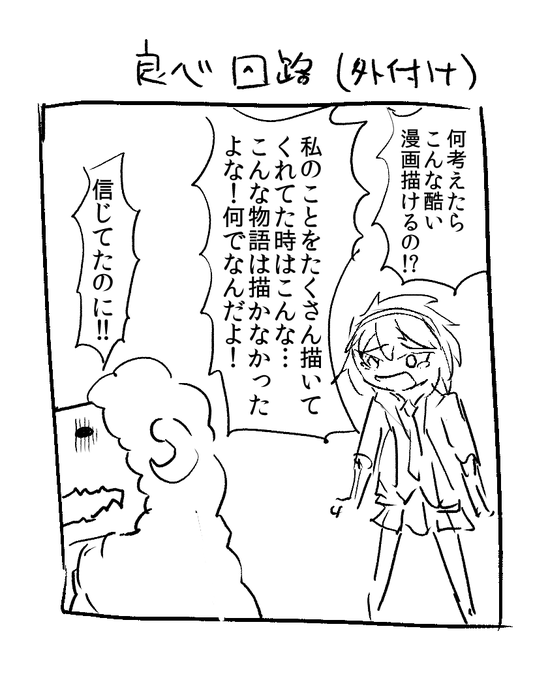 良心回路(外付け)
何考えたら
こんな酷い
漫画描けるの!?
私のことをたくさん描いて
くれてた時はこんな…
こんな物語は描かなかった
よな!何でなんだよ!
信じてたのに!!